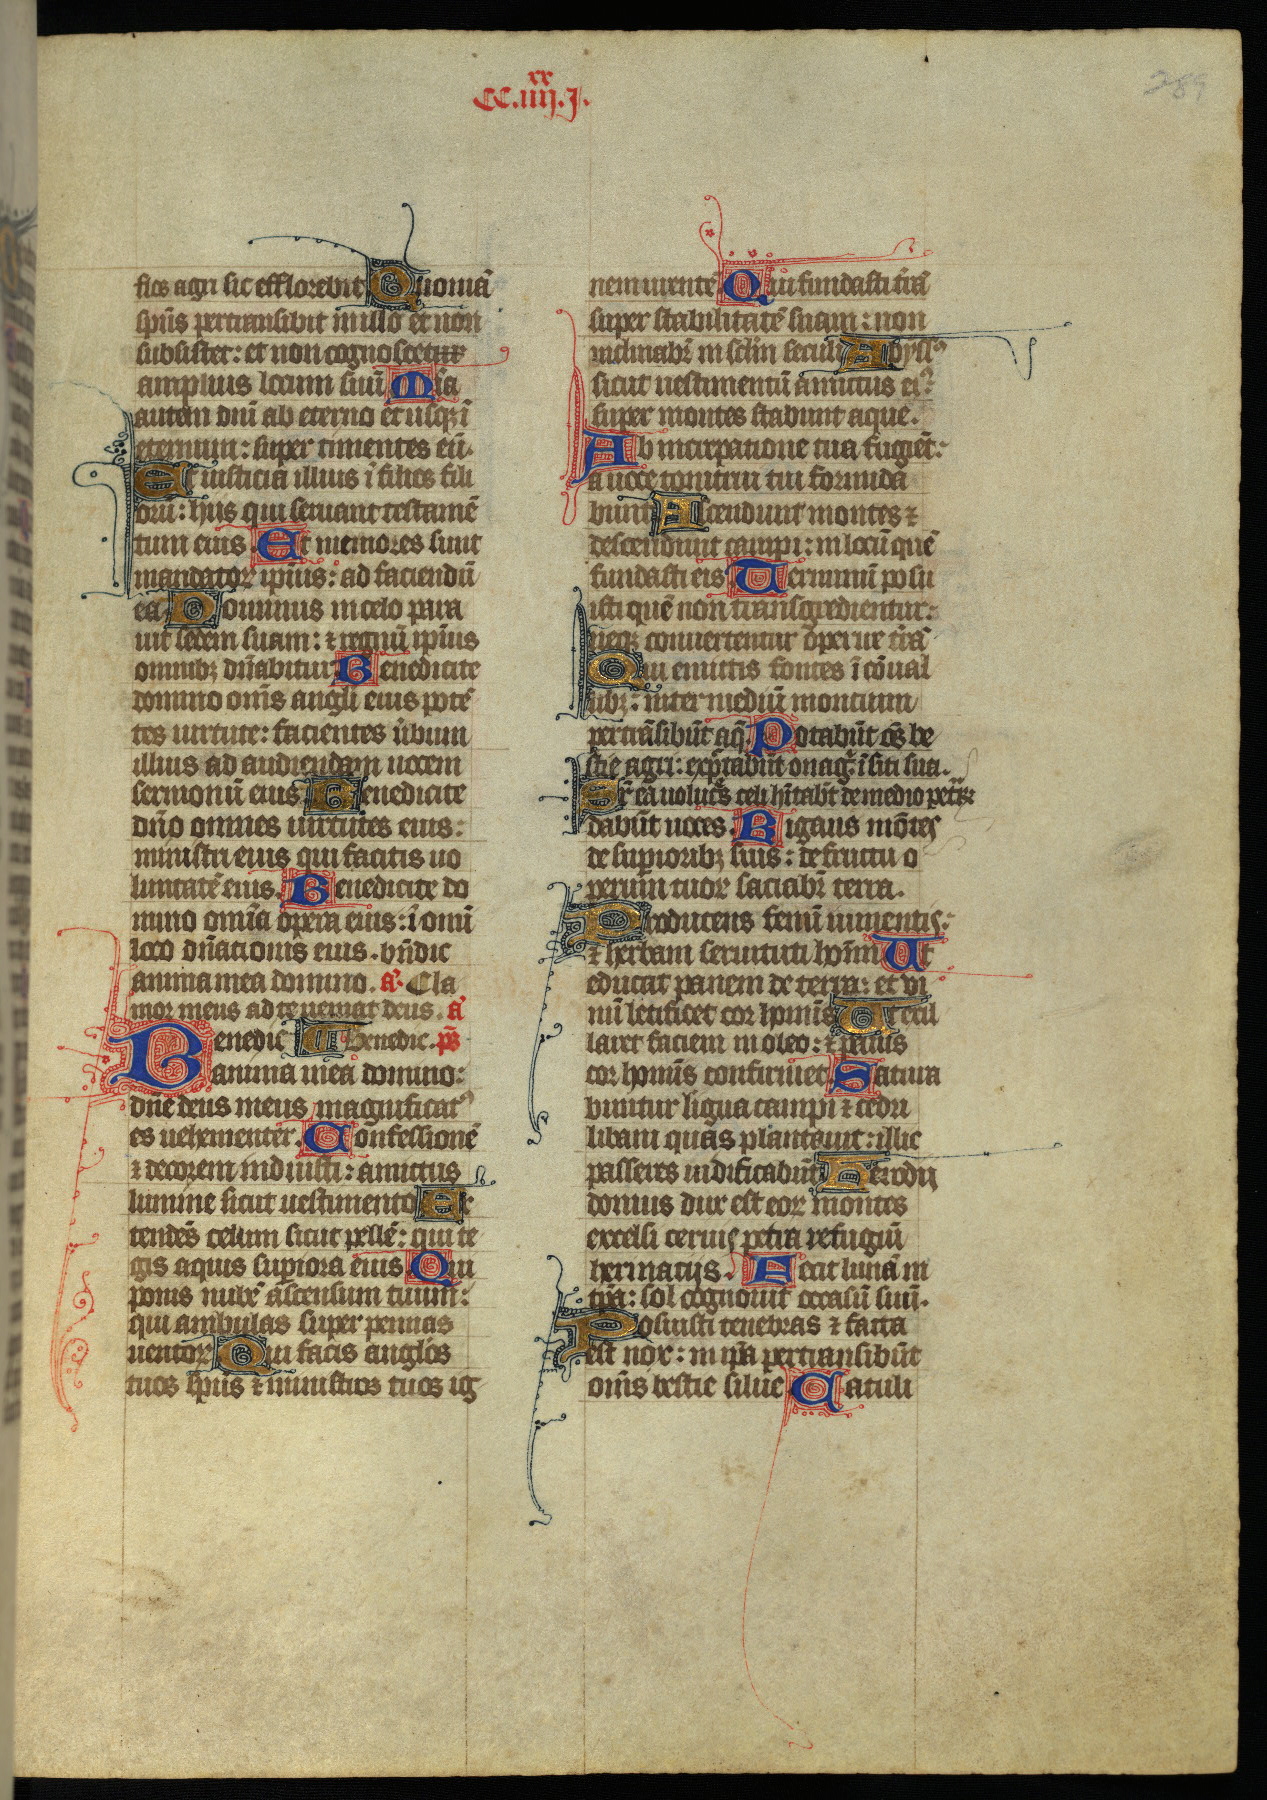 xx
CC.iiij.j.
289
flos agri sic efflorebit Quoniã
sp̃us pertransibit in illo et non
subsistet: et non cognoscet
amplius locum suũ Mĩa
autem dñi ab eterno et usqꝫ ĩ
eternum: super timentes eũ.
Et iusticia illius ĩ filios fili
orũ: hijs qui seruant testamẽ
tum eius Et memores sunt
mandatoꝝ ipsius: ad faciendũ
ea Dominus in celo para
uit sedem suam: ⁊ regnũ ipsius
omnibꝫ dñabitur Benedicite
domino om̃s angli eius potẽ
tes uirtute: facientes ũbum
illius ad audiendam uocem
sermonũ eius Benedicite
dño omnes uirtutes eius:
ministri eius qui facitis uo
luntatẽ eius. Benedicite do
mino om̃ia opera eius: ĩ omĩ
loco dñationis eius. bñdic
anima mea domino. a. Cla
mor meus ad te ueniat deus. a
Benedic Benedic. p̃s
anima mea domino:
dñe deus meus magnificatꝰ
es uehementer. Confessionẽ
⁊ decorem induisti: amictus
lumine sicut uestimento Ex
tendẽs celum sicut pellẽ: qui te
gis aquis superiora eius Qui
ponis nubẽ ascensum tuum:
qui ambulas super pennas
uentoꝝ Qui facis anglõs
tuos sp̃us ⁊ ministros tuos ig
nem urentẽ Qui fundasti t̃rã
super stabilitatẽ suam: non
inclinabiť in sclm̃ seculi Abyssꝰ
sicut uestimentũ amictus eiꝰ:
super montes stabunt aque.
Ab increpatione tua fugiẽt:
a uoce tonitrui tui formida
bunt Ascendunt montes ⁊
descendunt campi: in locũ quẽ
fundasti eis Terminũ posu
isti quẽ non transgredientur:
neqꝫ conuertentur operire t̃rã
Qui emittis fontes ĩ cõual
libꝫ: inter mediũ montium
pertrãsibũt aq̃ Potabũt om̃s be
stie agri: exp̃ctabũt onag̃i ĩ siti sua.
Sup̃ ea uoluc̃s celi hĩtabũt de medio petraꝝ:
dabũt uoces. Rigans mõtes
de superioribꝫ suis: de fructu o
perum tuoꝝ saciabiť terra.
Producens fenũ iumentis:
⁊ herbam seruituti hom̃i Ut
educat panem de terra: et vi
nũ letificet cor hominis Ut exil
laret faciem in oleo: ⁊ panis
cor hominis confirmet Satura
buntur ligna campi ⁊ cedri
libani quas plantauit: illic
passeres nidificabũt Herodij
domus dux est eoꝝ montes
excelsi ceruis petra refugiũ
hermatijs. Fecit lunã in
tp̃a: sol cognouit occasũ suũ.
Posuisti tenebras ⁊ facta
est nox: in ip̃a pertransibũt
om̃s bestie silue Catuli